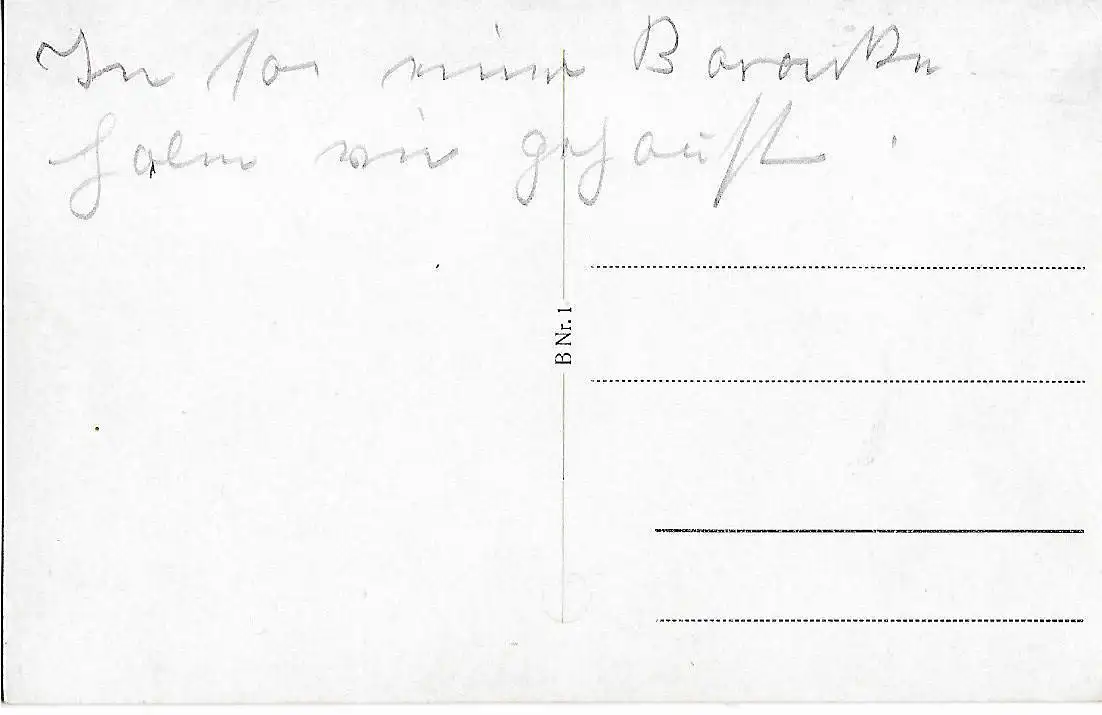 In so eine Baracke
haben wir gehaust.
B Nr. 1